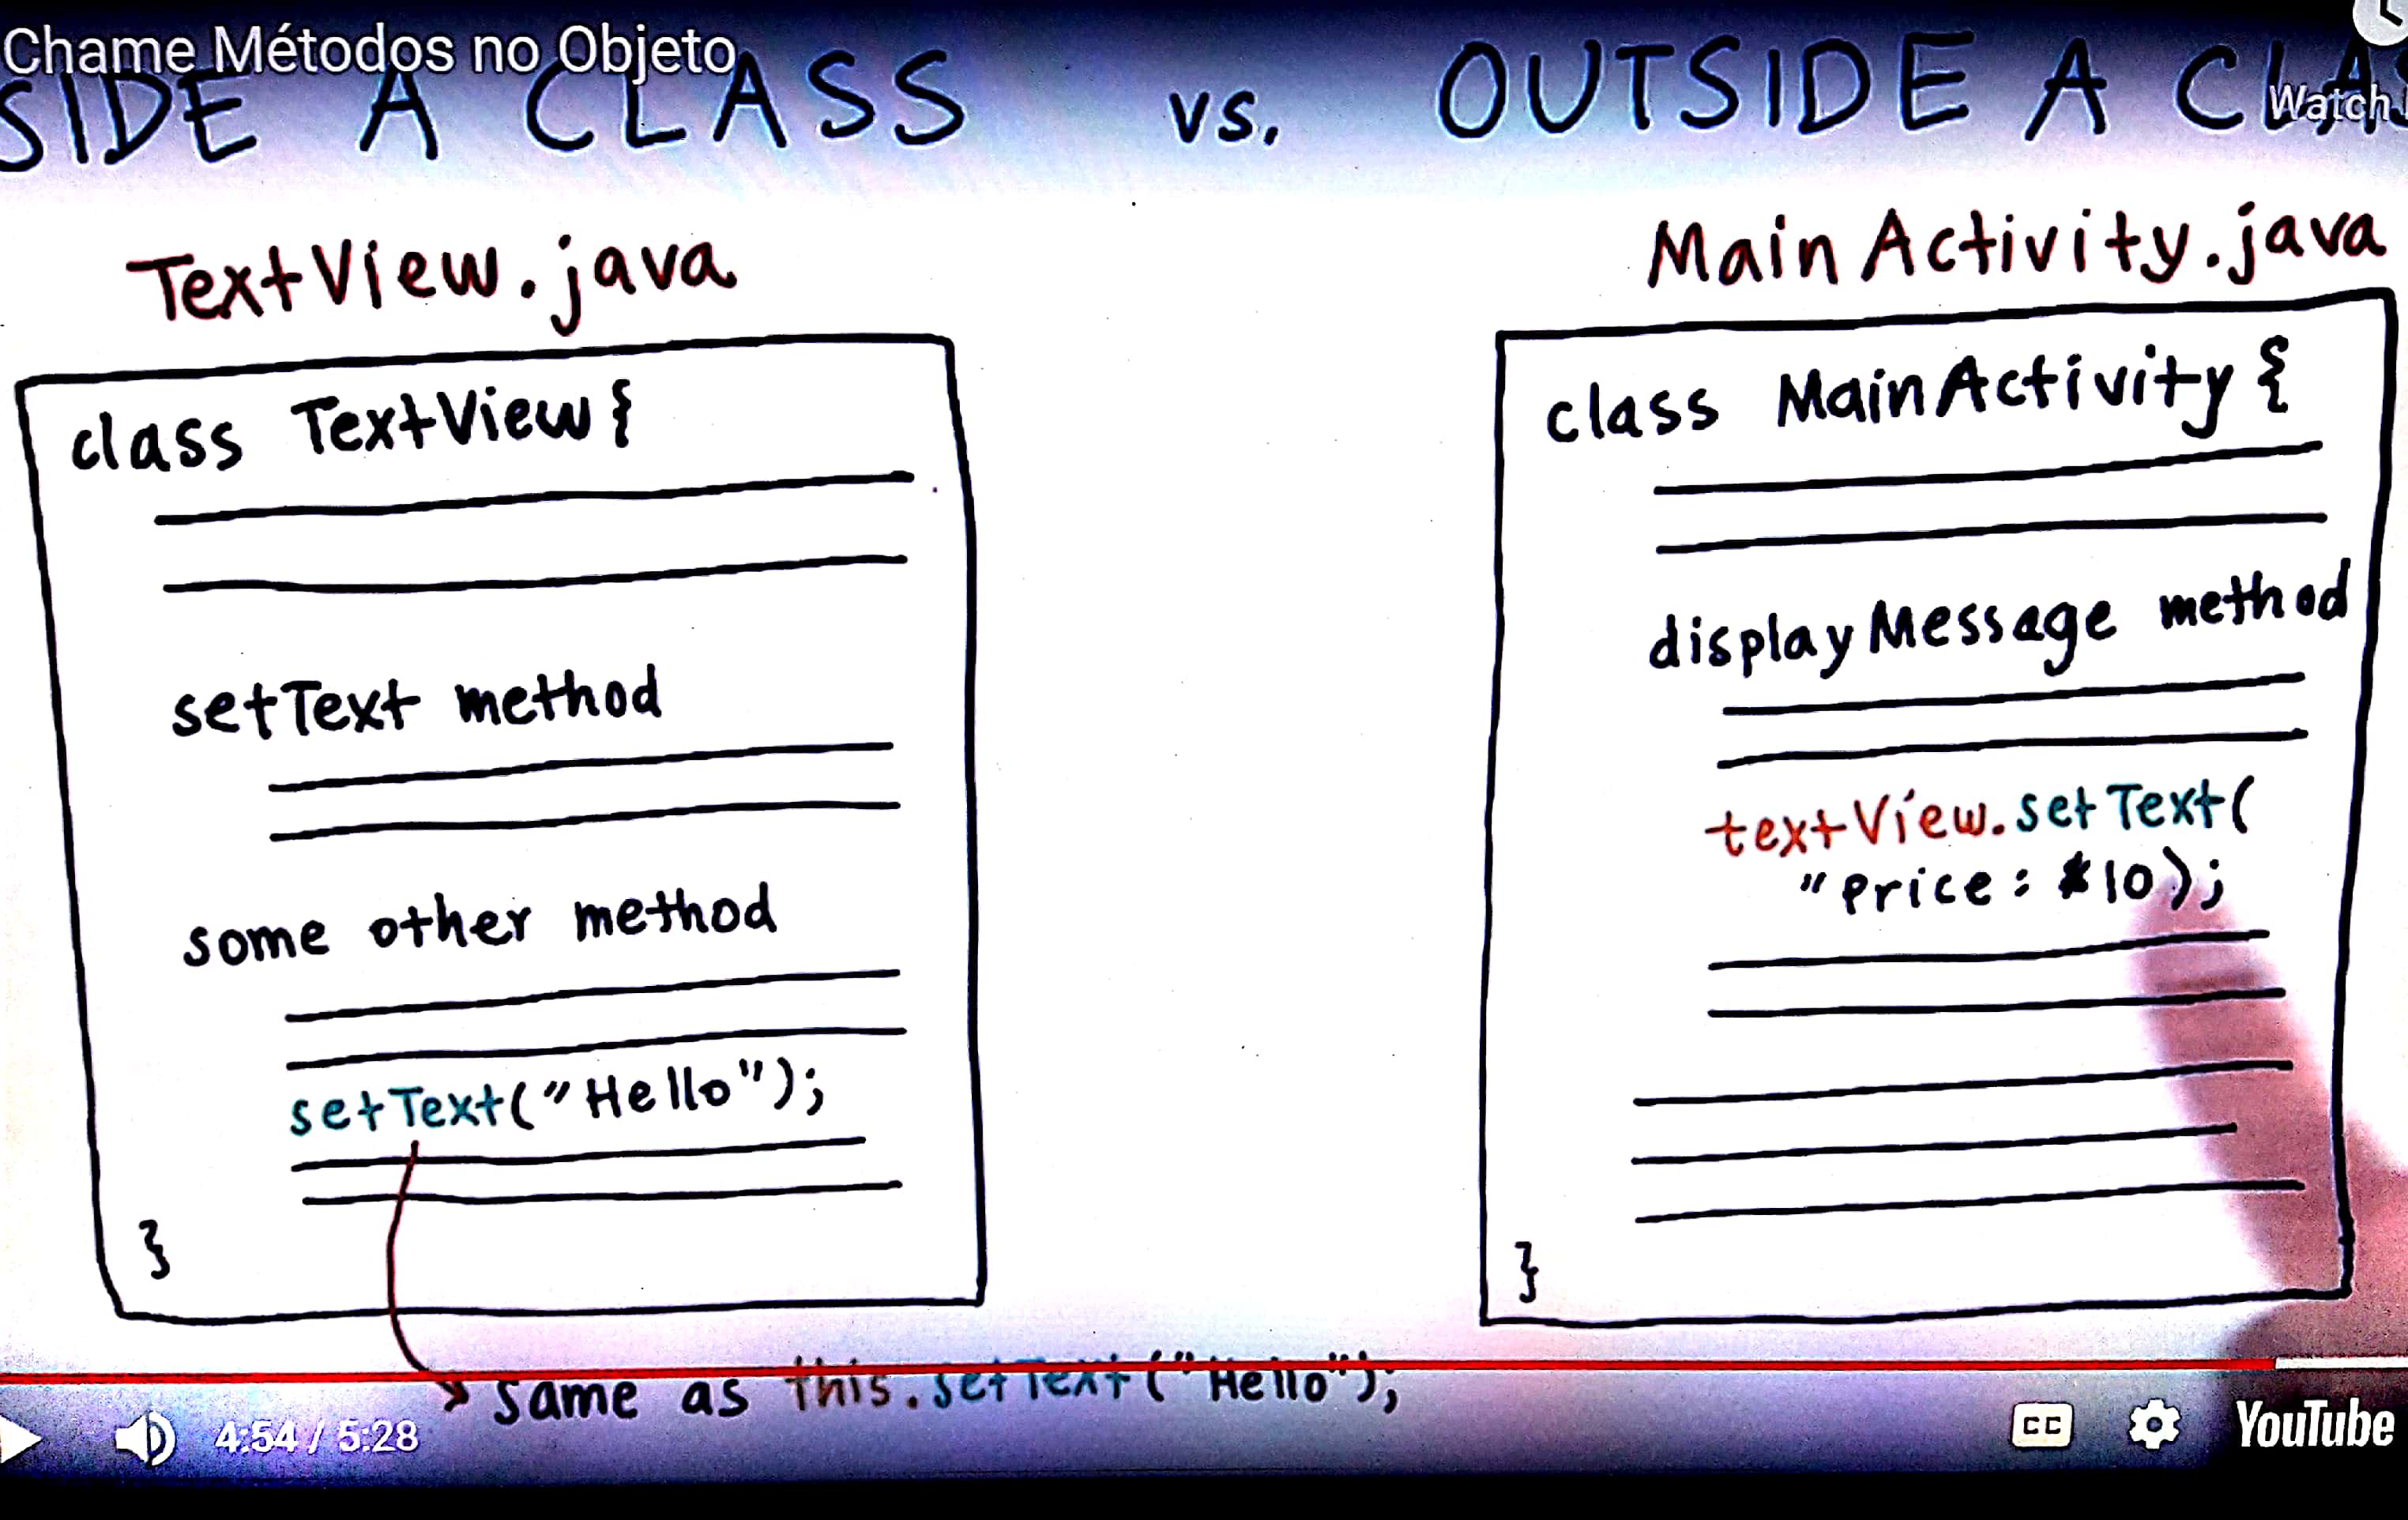 Chame Métodos no Objeto
SIDE A CLASS vs. OUTSIDE A CLAS
Watch
TextView.java
class TextView {
setText method
some other method
setText("Hello");
}
same as this.setText("Hello");
MainActivity.java
class MainActivity {
displayMessage method
textView.setText(
"Price: $10);
}
4:54 / 5:28
CC
YouTube